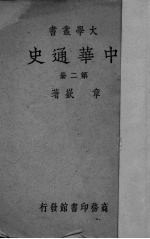 大學叢書
中華通史
第二册
章嶔著
商務印書館發行